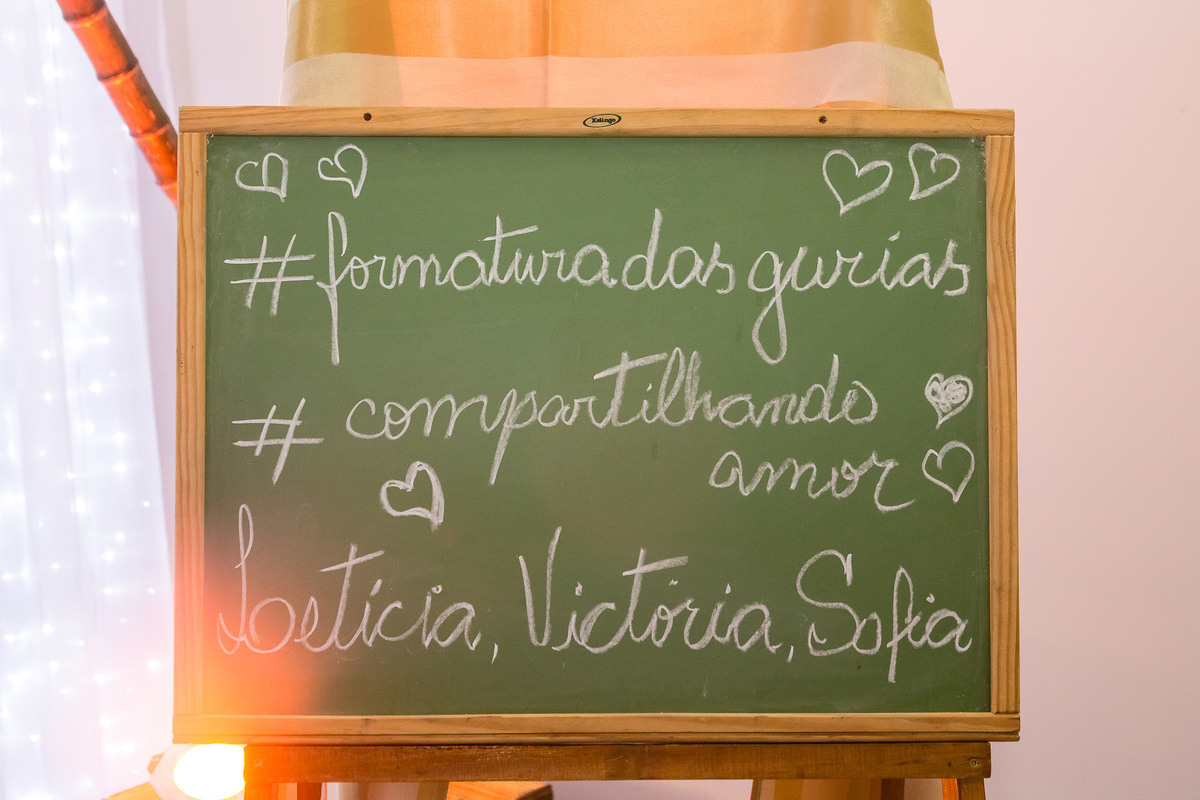 Xalingo
#formaturadasgurias
#compartilhando
amor
Laetícia, Victória, Sofia